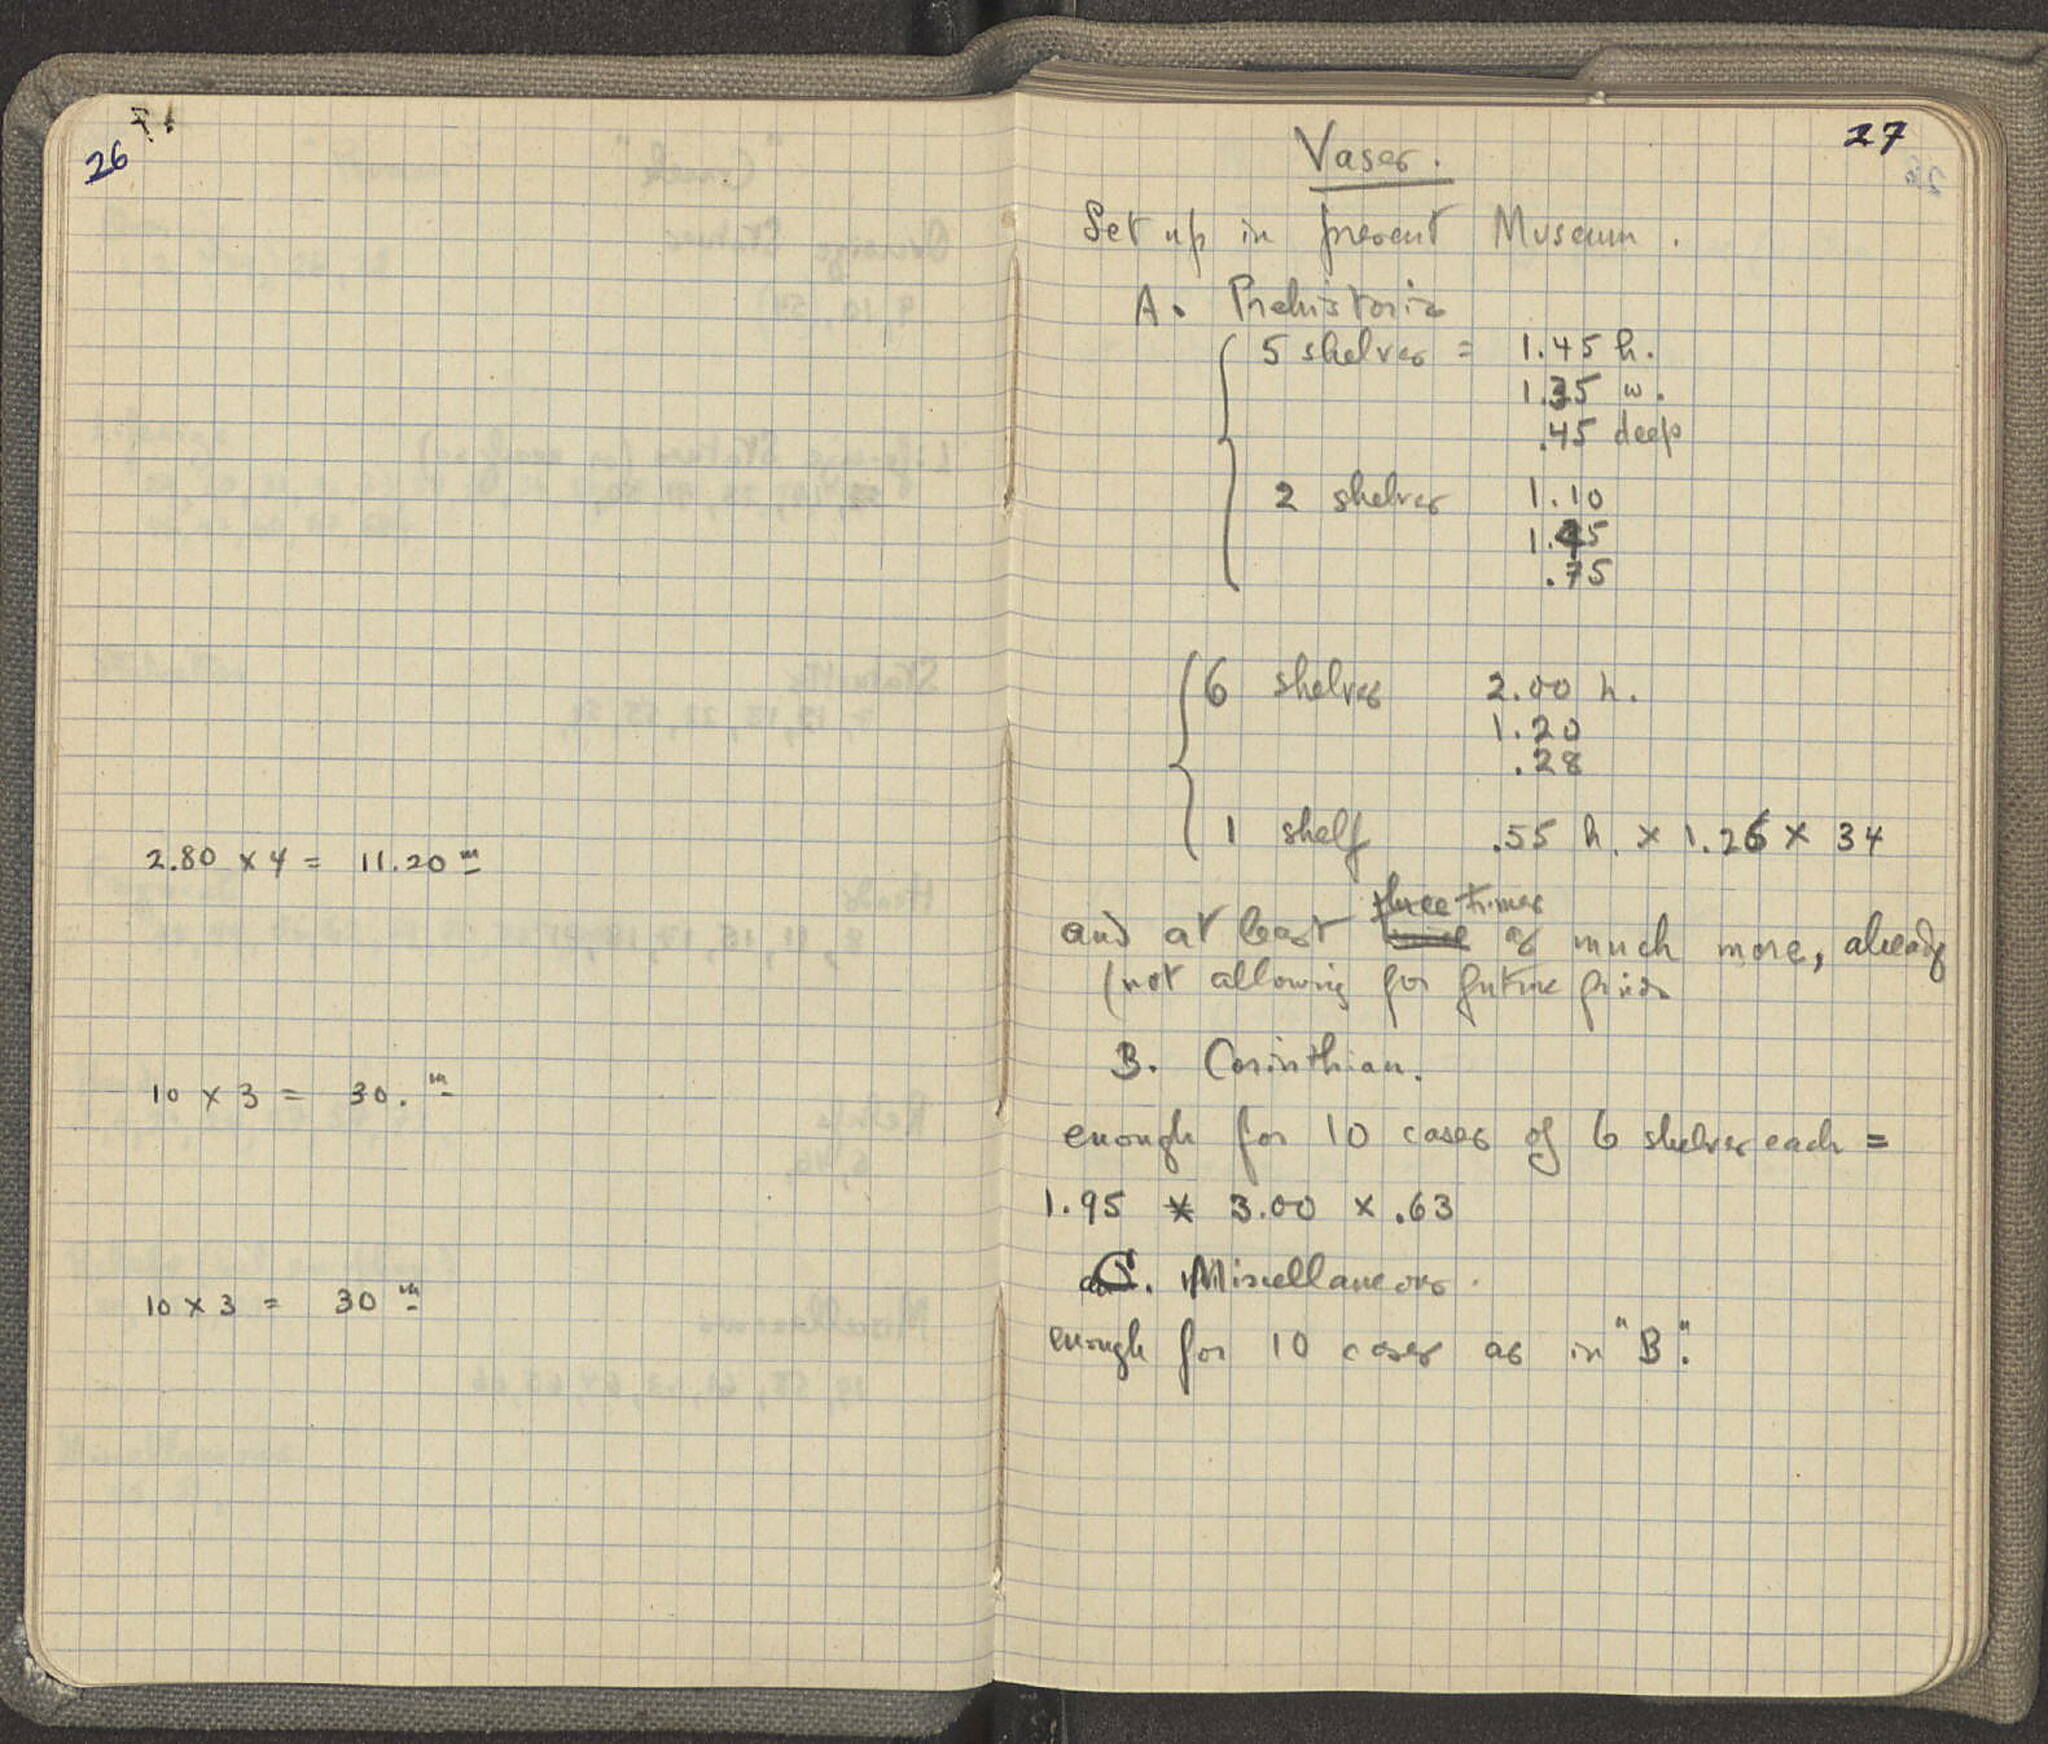 26
2.80 x 4 = 11.20 m
10 x 3 = 30. m
10 x 3 = 30 m
27
Vases.
Set up in present Museum.
A. Prehistoric
5 shelves = 1.45 h.
1.35 w.
.45 deep
2 shelves 1.10
1.45
.75
6 shelves 2.00 h.
1.20
.28
1 shelf .55 h. x 1.26 x 34
three times
and at least as much more, already
(not allowing for future finds
B. Corinthian.
enough for 10 cases of 6 shelves each =
1.95 x 3.00 x .63
C. Miscellaneous.
enough for 10 cases as in "B".